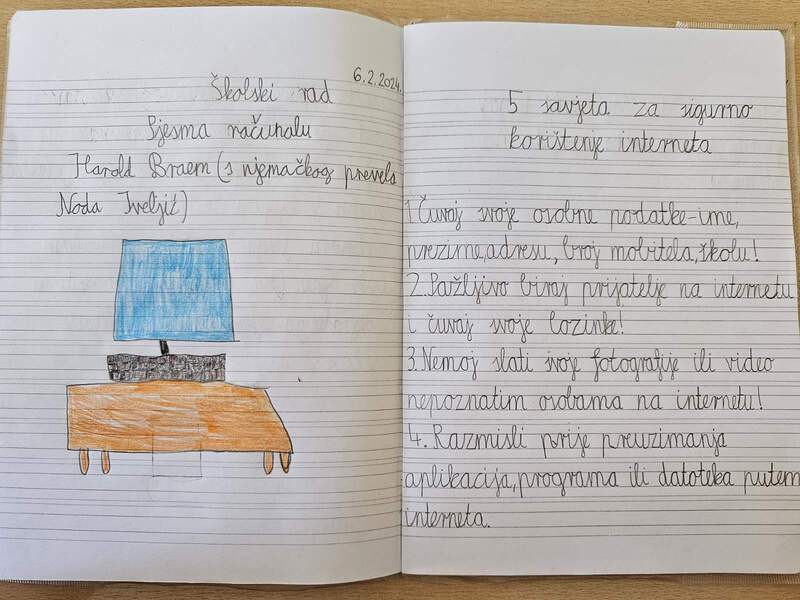 6.2.2024.
Školski rad
Pjesma računalu
Harold Braem (s njemačkog prevela
Nada Iveljić)
5 savjeta za sigurno
korištenje interneta
1. Čuvaj svoje osobne podatke-ime,
prezime, adresu, broj mobitela, školu!
2. Pažljivo biraj prijatelje na internetu
i čuvaj svoje lozinke!
3. Nemoj slati svoje fotografije ili video
nepoznatim osobama na internetu!
4. Razmisli prije preuzimanja
aplikacija, programa ili datoteka putem
interneta.